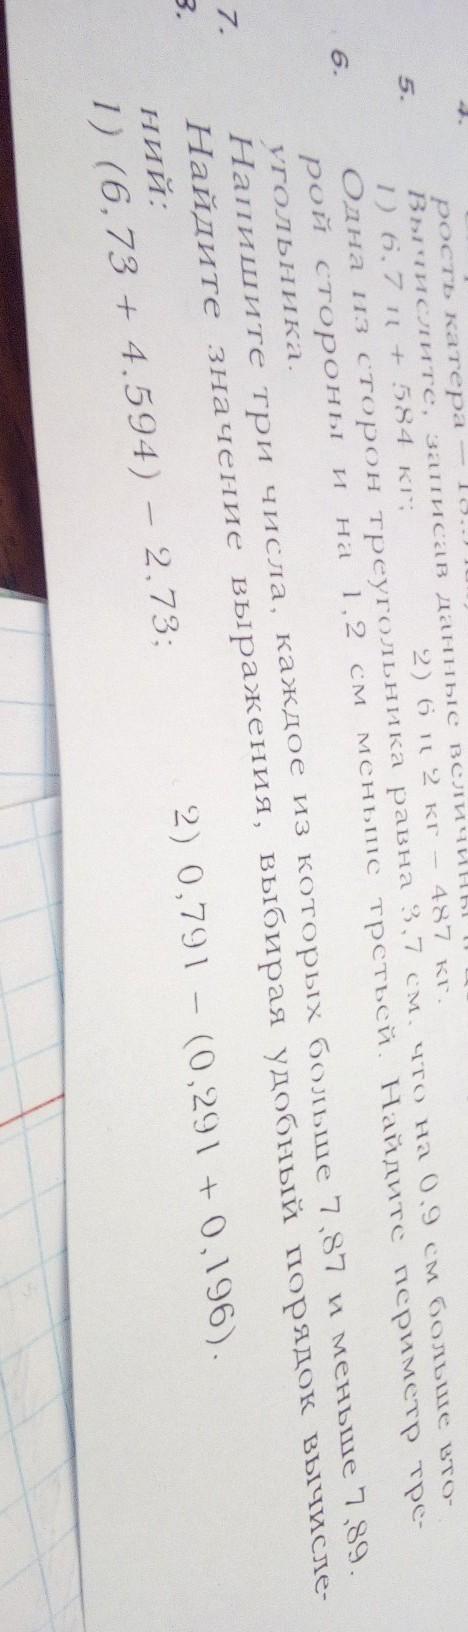 4.
рость катера –
5. Вычислите, записав данные величины
1) 6,7 ц + 584 кг; 2) 6 ц 2 кг – 487 кг.
6. Одна из сторон треугольника равна 3,7 см, что на 0,9 см больше вто-
рой стороны и на 1,2 см меньше третьей. Найдите периметр тре-
угольника.
7. Напишите три числа, каждое из которых больше 7,87 и меньше 7,89.
8. Найдите значение выражения, выбирая удобный порядок вычисле-
ний:
1) (6,73 + 4,594) – 2,73; 2) 0,791 – (0,291 + 0,196).